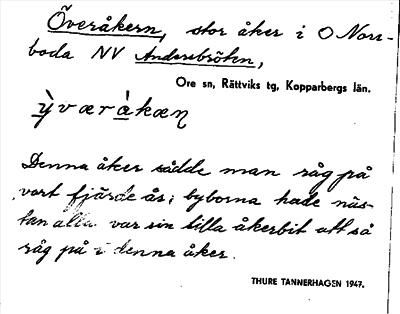 Överåkern, stor åker i O Norr-
boda NV Andersbröten,
Ore sn, Rättviks tg, Kopparbergs län.
ỳværàkæn
Denna åker sådde man råg på
vart fjärde år; byborna hade näs-
tan alla var sin lilla åkerbit att så
råg på i denna åker.
THURE TANNERHAGEN 1947.